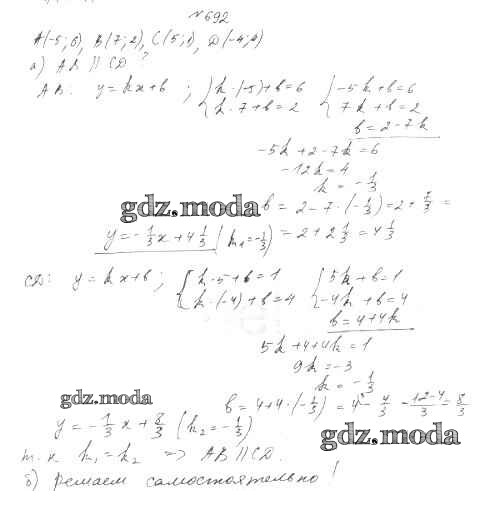 №692
A(-5; 6), B(7; 2), C(5; 1), D(-4; 4)
а) AB || CD ?
AB: y=kx+b ; { k·(-5)+b=6 { -5k+b=6
k·7+b=2 7k+b=2
b=2-7k
-5k+2-7k=6
-12k=4
k=-1/3
gdz.moda b = 2-7·(-1/3)=2+7/3=
y=-1/3x+4 1/3 (k₁=-1/3) =2+2 1/3=4 1/3
CD: y=kx+b ; { k·5+b=1 { 5k+b=1
k·(-4)+b=4 -4k+b=4
b=4+4k
5k+4+4k=1
9k=-3
k=-1/3
gdz.moda b=4+4·(-1/3)=4-4/3=12-4/3=8/3
y=-1/3x+8/3 (k₂=-1/3)
gdz.moda
т.к k₁=k₂ => AB||CD.
б) Решаем самостоятельно!